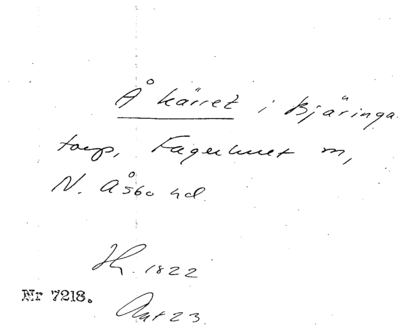 Å kärret i Bjäringa
torp, Fagerhult m,
N. Åsbo hd
Hr. 1822
Nr 7218.
Akt 23